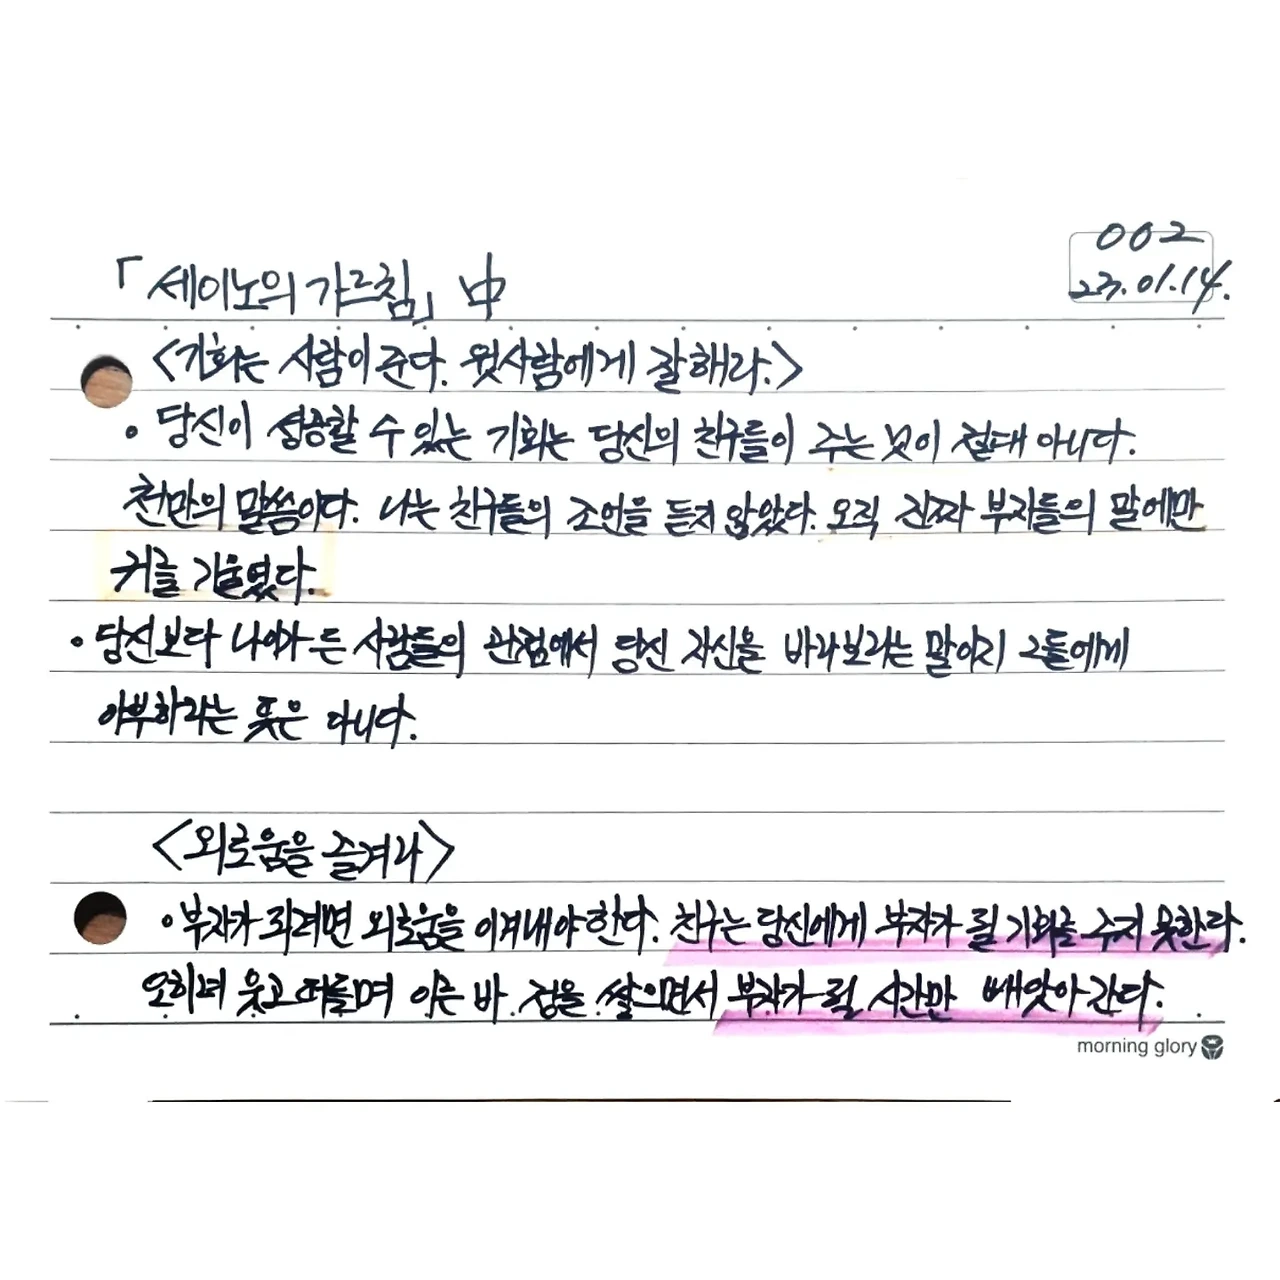 002
「세이노의 가르침」 中
23.01.14.
<기회는 사람이 준다. 윗사람에게 잘해라.>
• 당신이 성공할 수 있는 기회는 당신의 친구들이 주는 것이 절대 아니다.
천만의 말씀이다. 나는 친구들의 조언을 듣지 않았다. 오직 진짜 부자들의 말에만
귀를 기울였다.
• 당신보다 나이가 든 사람들의 관점에서 당신 자신을 바라보라는 말이지 그들에게
아부하라는 뜻은 아니다.
<외로움을 즐겨라>
• 부자가 되려면 외로움을 이겨내야 한다. 친구는 당신에게 부자가 될 기회를 주지 못한다.
오히려 웃고 떠들며 이른 바 정을 쌓으면서 부자가 될 시간만 빼앗아 간다.
morning glory